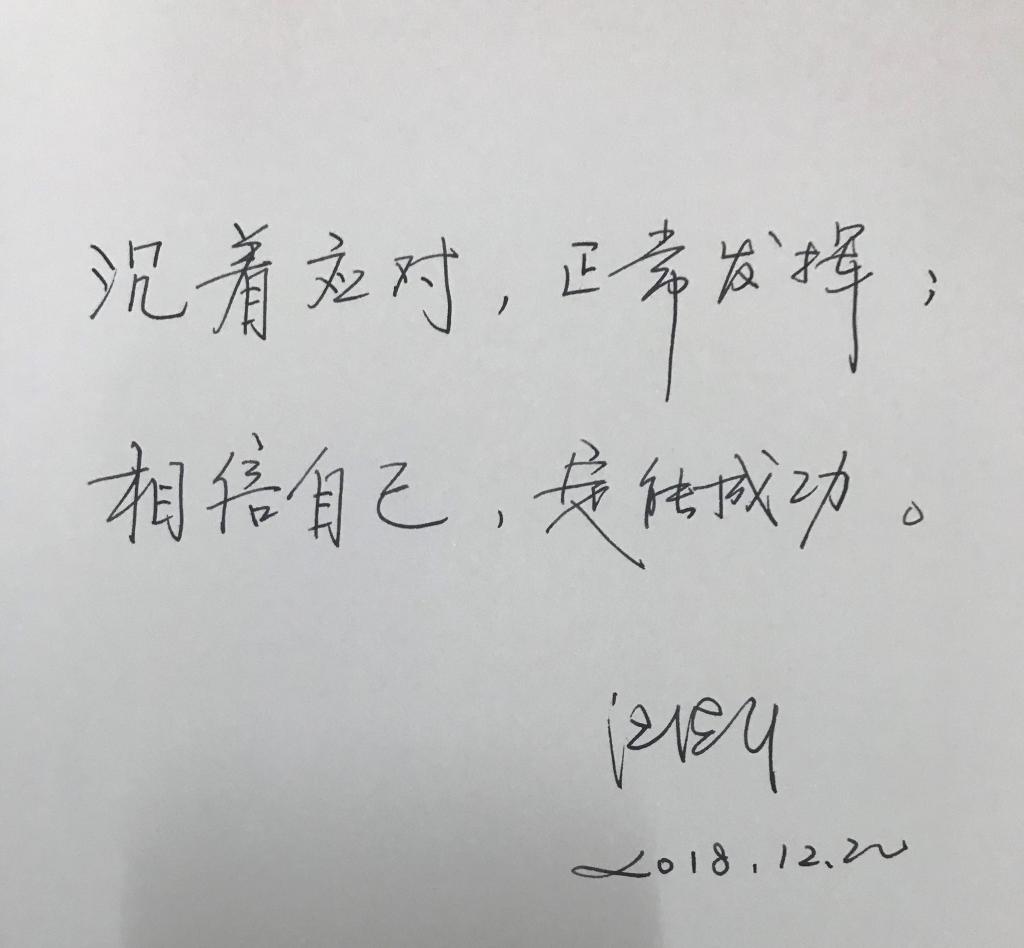 沉着应对，正常发挥；
相信自己，定能成功。
2018.12.22